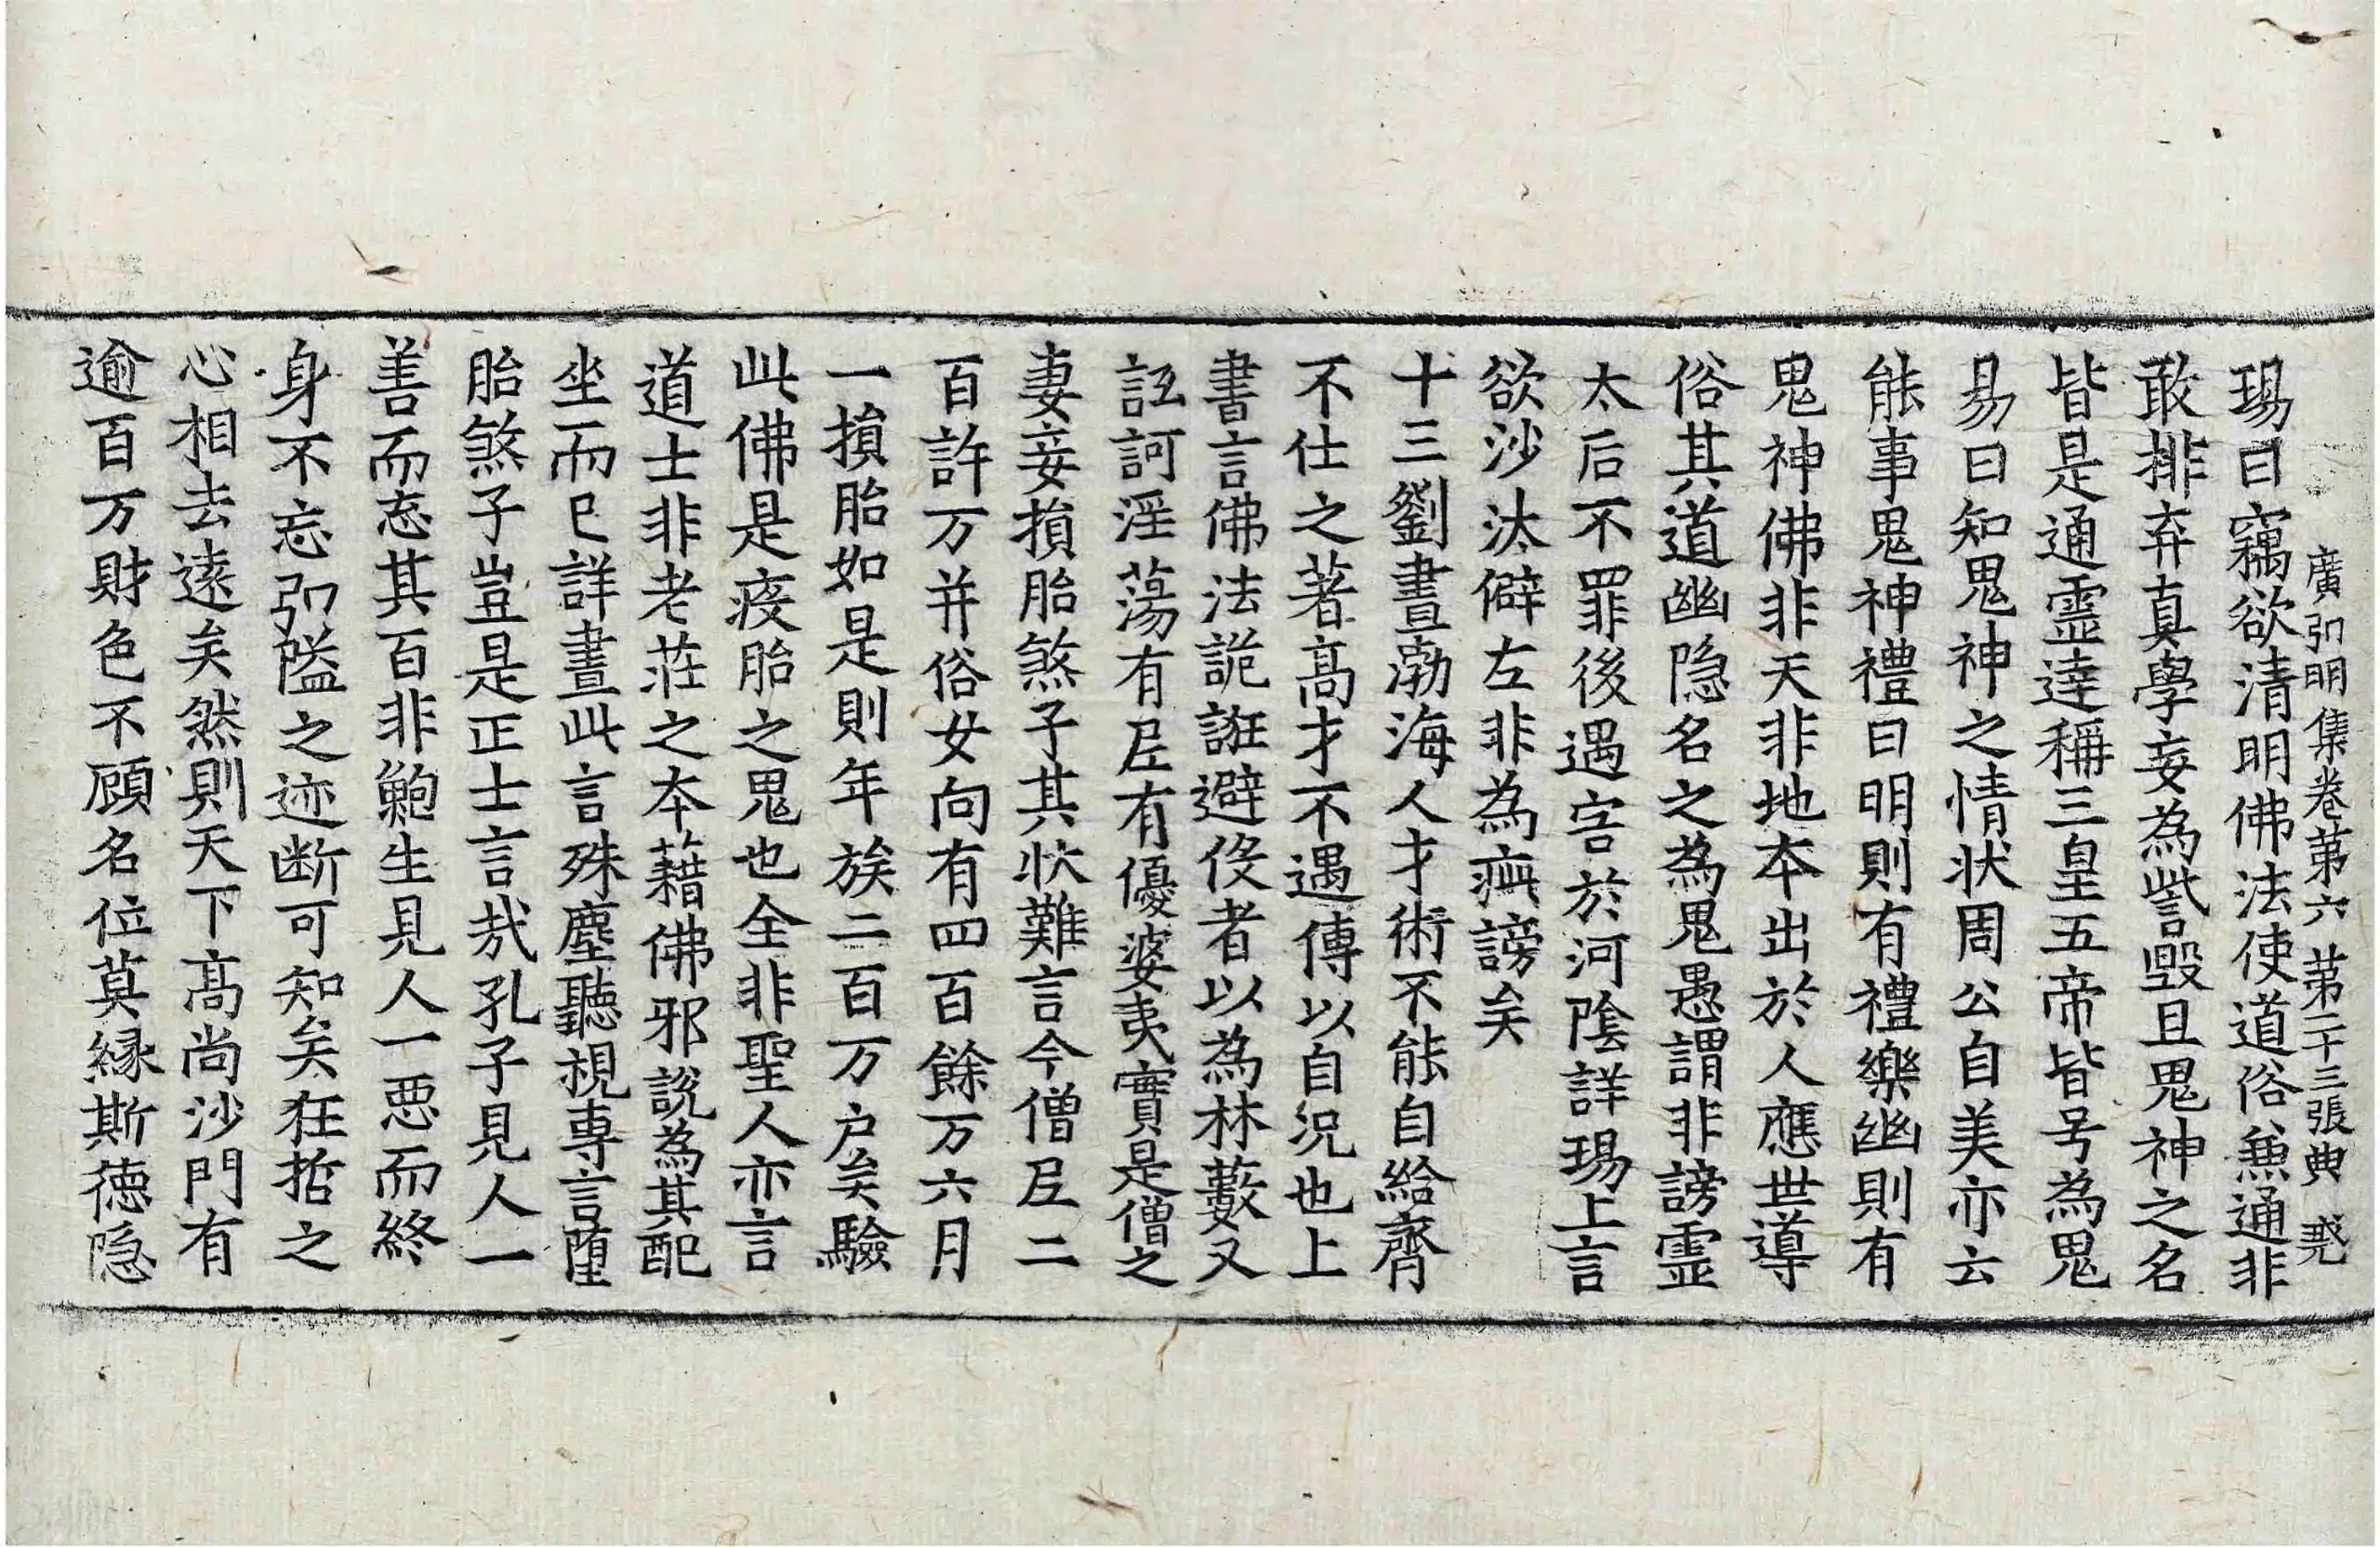 廣弘明集卷第六 第二十三張 典 㷱
瑒曰竊欲清明佛法使道俗兼通非
敢排弃真學妄為訾毀且鬼神之名
皆是通靈達稱三皇五帝皆号為鬼
易曰知鬼神之情状周公自美亦云
能事鬼神禮曰明則有禮樂幽則有
鬼神佛非天非地本出於人應世導
俗其道幽隐名之為鬼愚謂非謗霊
太后不罪後遇害於河陰詳瑒上言
欲沙汰僻左非為痶謗矣
十三劉晝渤海人才術不能自給齊
不仕之著髙才不遇傳以自况也上
書言佛法詭誑避役者以為林藪又
詆訶淫蕩有尼有優婆夷實是僧之
妻妾損胎煞子其状難言今僧尼二
百許万并俗女向有四百餘万六月
一損胎如是則年族二百万户矣驗
此佛是疫胎之鬼也全非聖人亦言
道士非老莊之本藉佛邪說為其配
坐而已詳晝此言殊塵聽視專言墮
胎煞子豈是正士言㢤孔子見人一
善而忘其百非鮑生見人一惡而終
身不忘弘隘之迹断可知矣狂哲之
心相去遠矣然則天下髙尚沙門有
逾百万財色不顧名位莫緣斯德隐